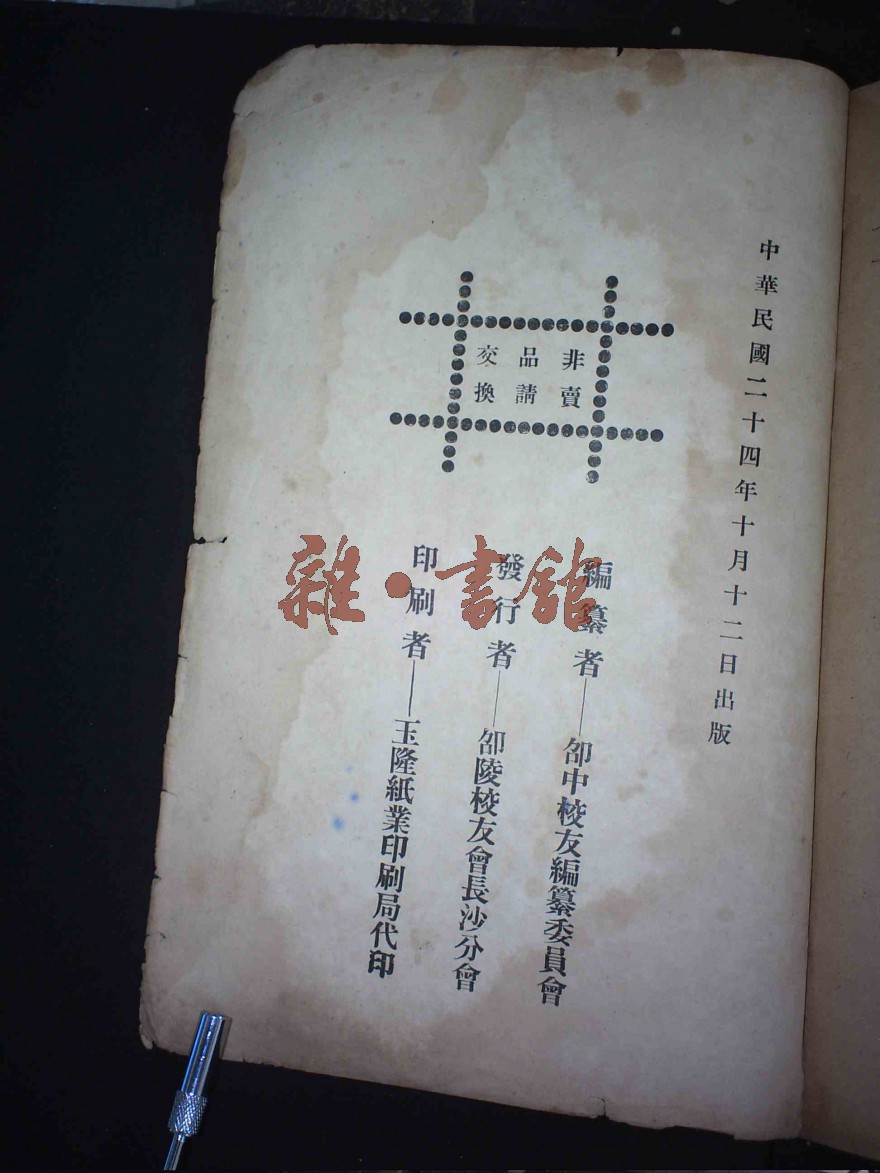 中華民國二十四年十月十二日出版
非賣
品請
交換
編纂者——郃中校友編纂委員會
發行者——郃陵校友會長沙分會
印刷者——玉隆紙業印刷局代印
雜·書館